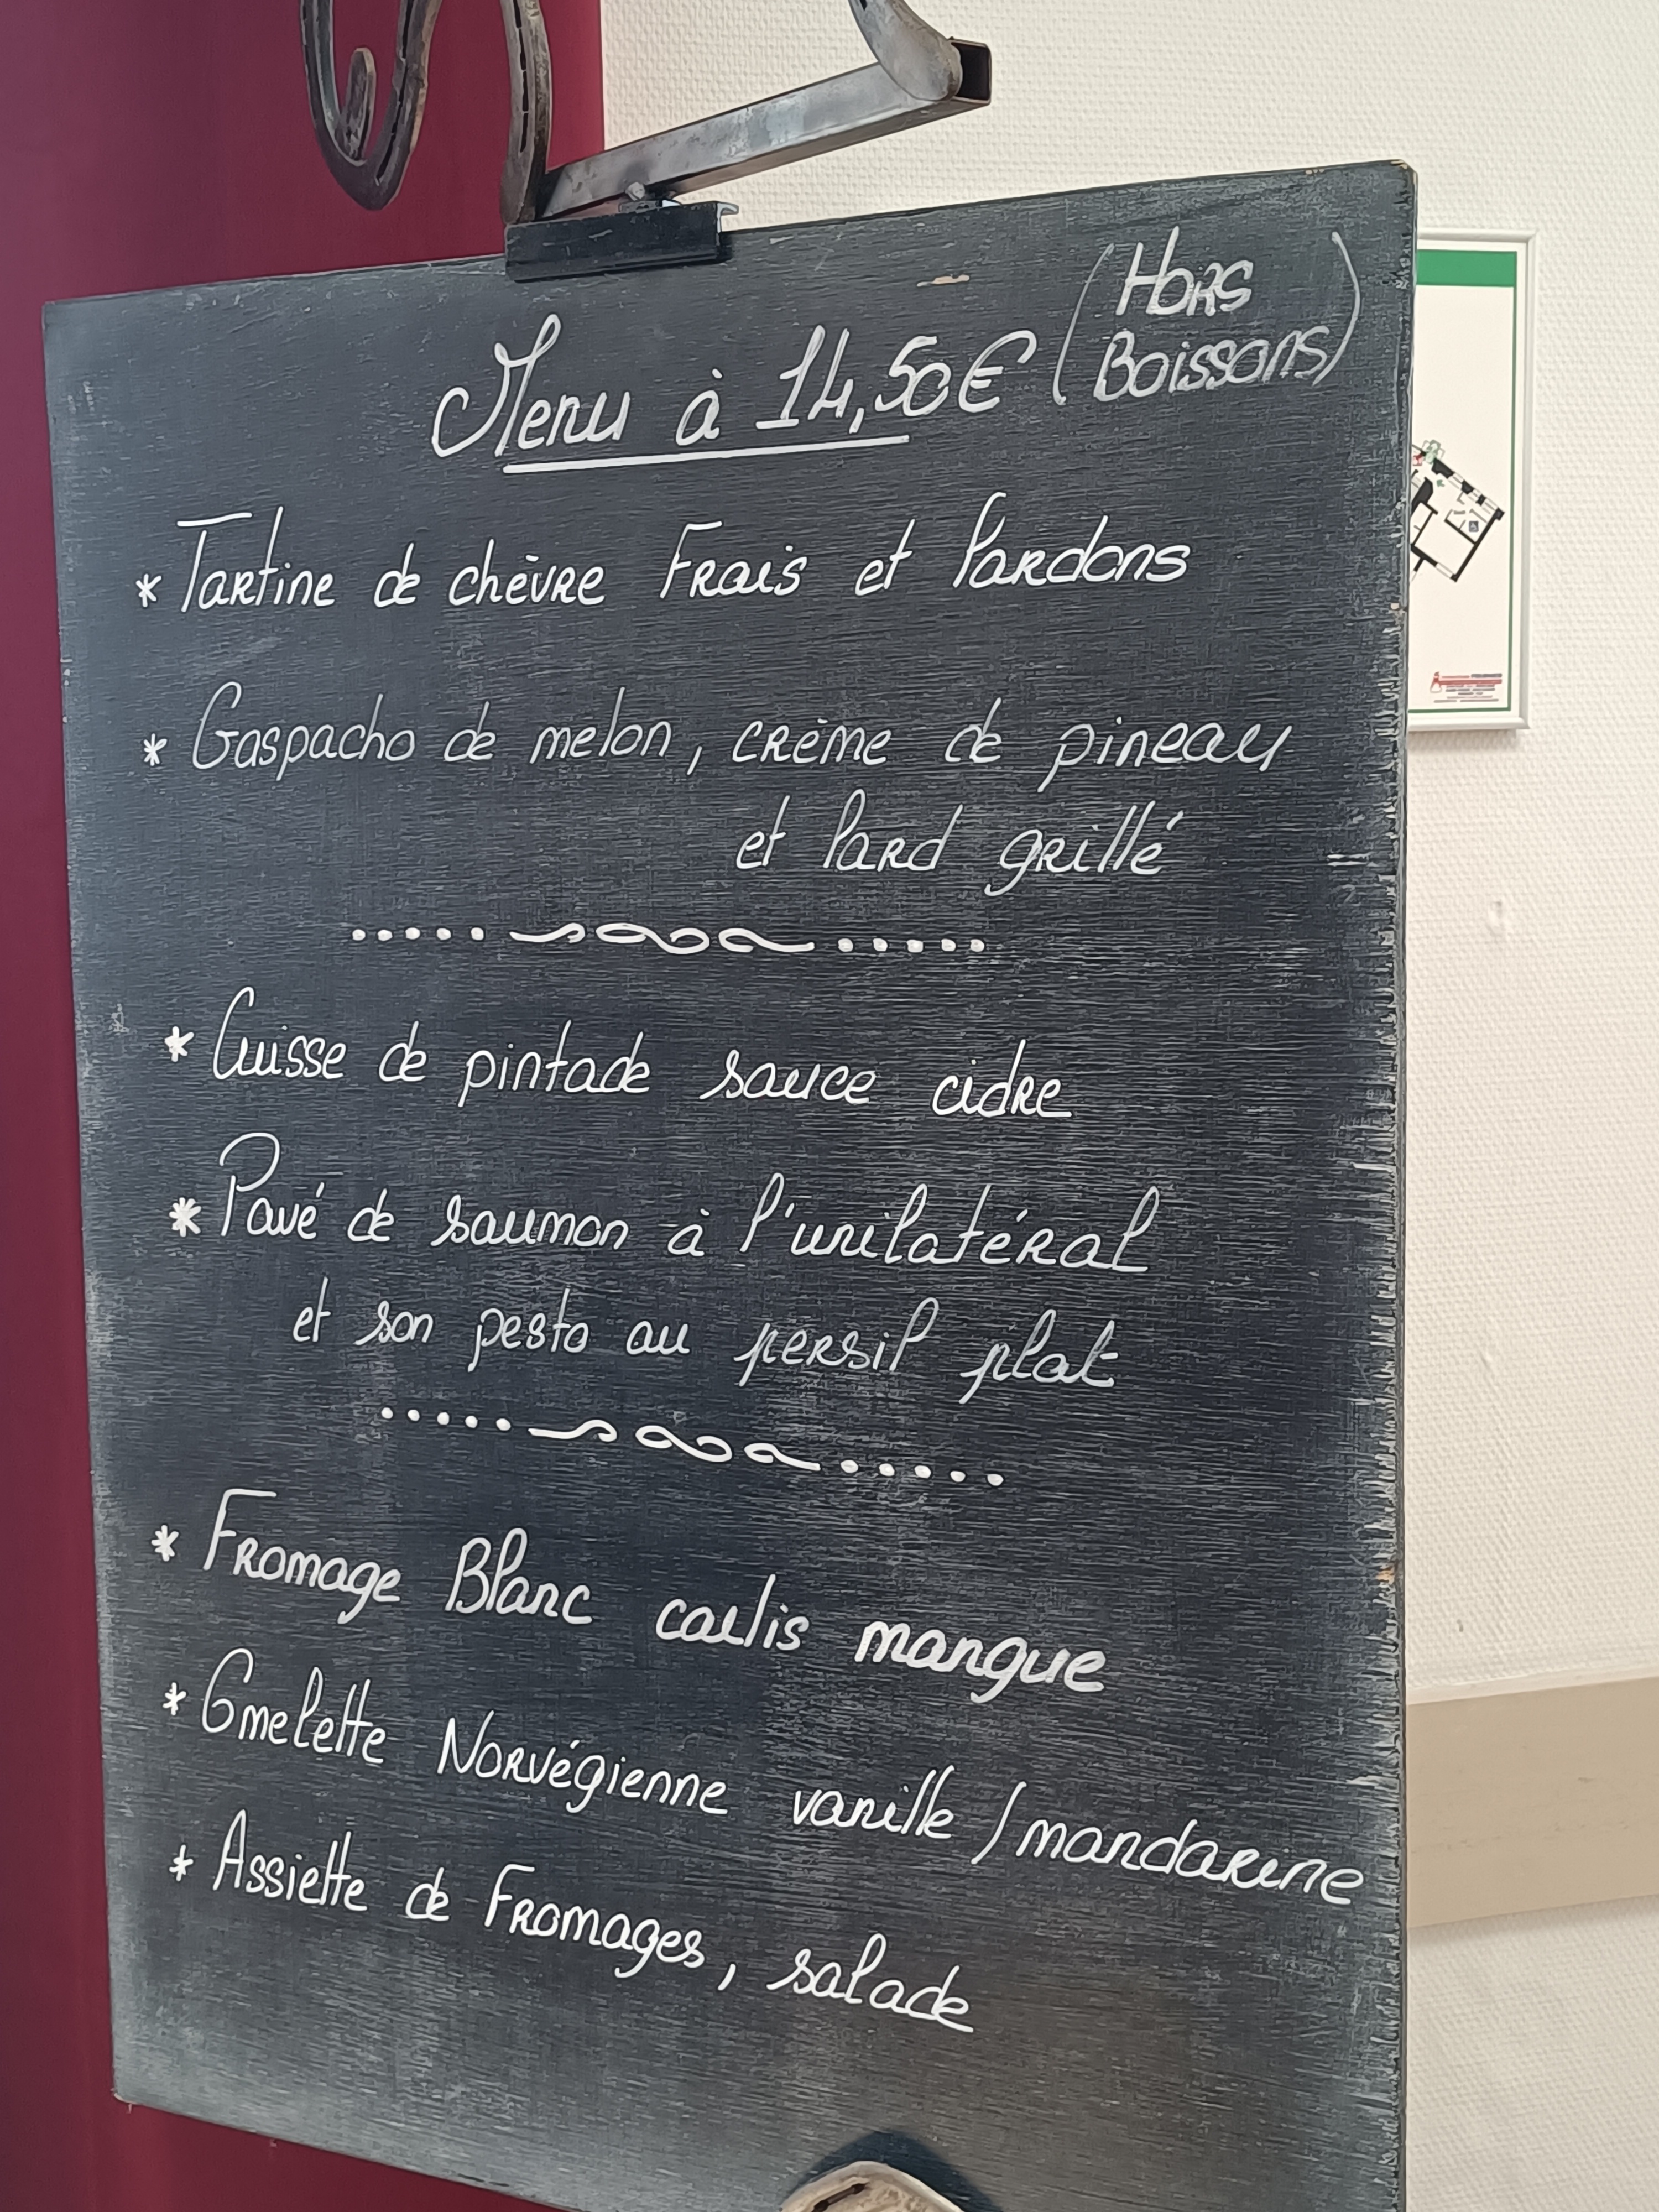 Menu à 14,50€ (Hors
Boissons)
* Tartine de chèvre Frais et lardons
* Gaspacho de melon, crème de pineau
et lard grillé
* Cuisse de pintade sauce cidre
* Pavé de saumon à l'unilatéral
et son pesto au persil plat
* Fromage Blanc coulis mangue
* Omelette Norvégienne vanille / mandarine
* Assiette de Fromages, salade